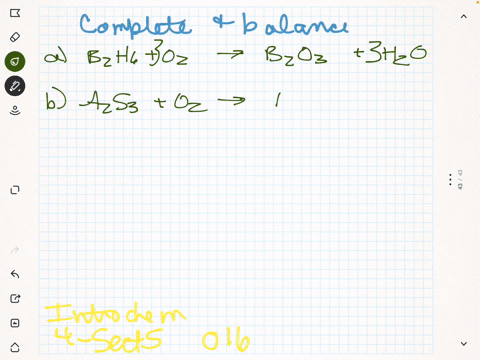 Complete & balance
a) B2H6 + 3O2 → B2O3 + 3H2O
b) A2S3 + O2 → 1
43 / 43
Introchem
4-Sect5 016